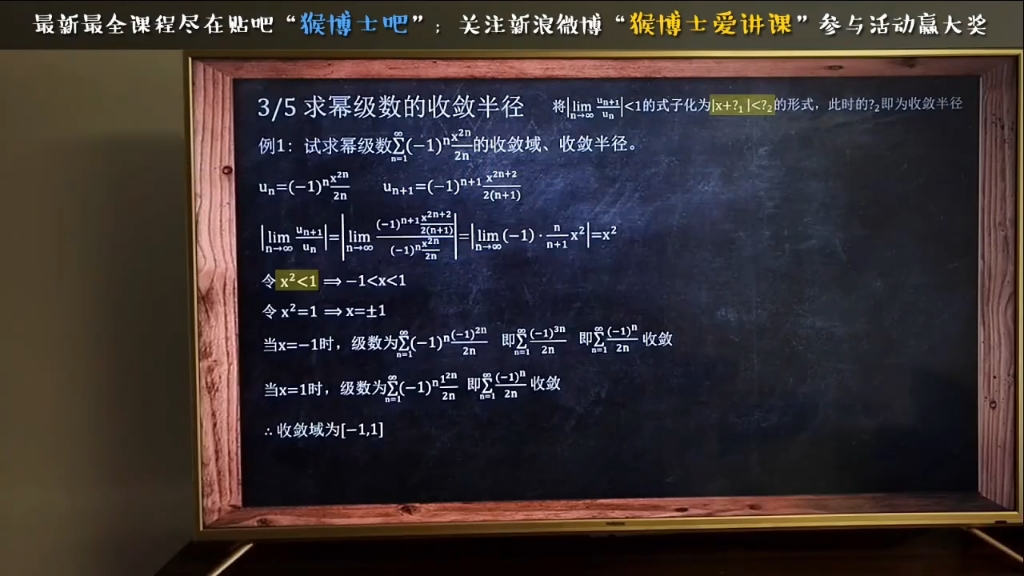 最新最全课程尽在贴吧“猴博士吧”；关注新浪微博“猴博士爱讲课”参与活动赢大奖
3/5 求幂级数的收敛半径 将|lim_{n→∞} u_{n+1}/u_n|<1的式子化为|x+?₁|<?₂的形式，此时的?₂即为收敛半径
例1：试求幂级数∑_{n=1}^{∞}(−1)ⁿ x^{2n}/2n 的收敛域、收敛半径。
uₙ=(−1)ⁿ x^{2n}/2n u_{n+1}=(−1)^{n+1} x^{2n+2}/2(n+1)
|lim_{n→∞} u_{n+1}/u_n|=|lim_{n→∞} ((−1)^{n+1} x^{2n+2}/2(n+1))/((−1)ⁿ x^{2n}/2n)|=|lim_{n→∞}(−1)·n/(n+1) x²|=x²
令 x²<1 ⟹ −1<x<1
令 x²=1 ⟹ x=±1
当x=−1时，级数为∑_{n=1}^{∞}(−1)ⁿ (−1)^{2n}/2n 即∑_{n=1}^{∞} (−1)^{3n}/2n 即∑_{n=1}^{∞} (−1)ⁿ/2n 收敛
当x=1时，级数为∑_{n=1}^{∞}(−1)ⁿ 1^{2n}/2n 即∑_{n=1}^{∞} (−1)ⁿ/2n 收敛
∴ 收敛域为[−1,1]